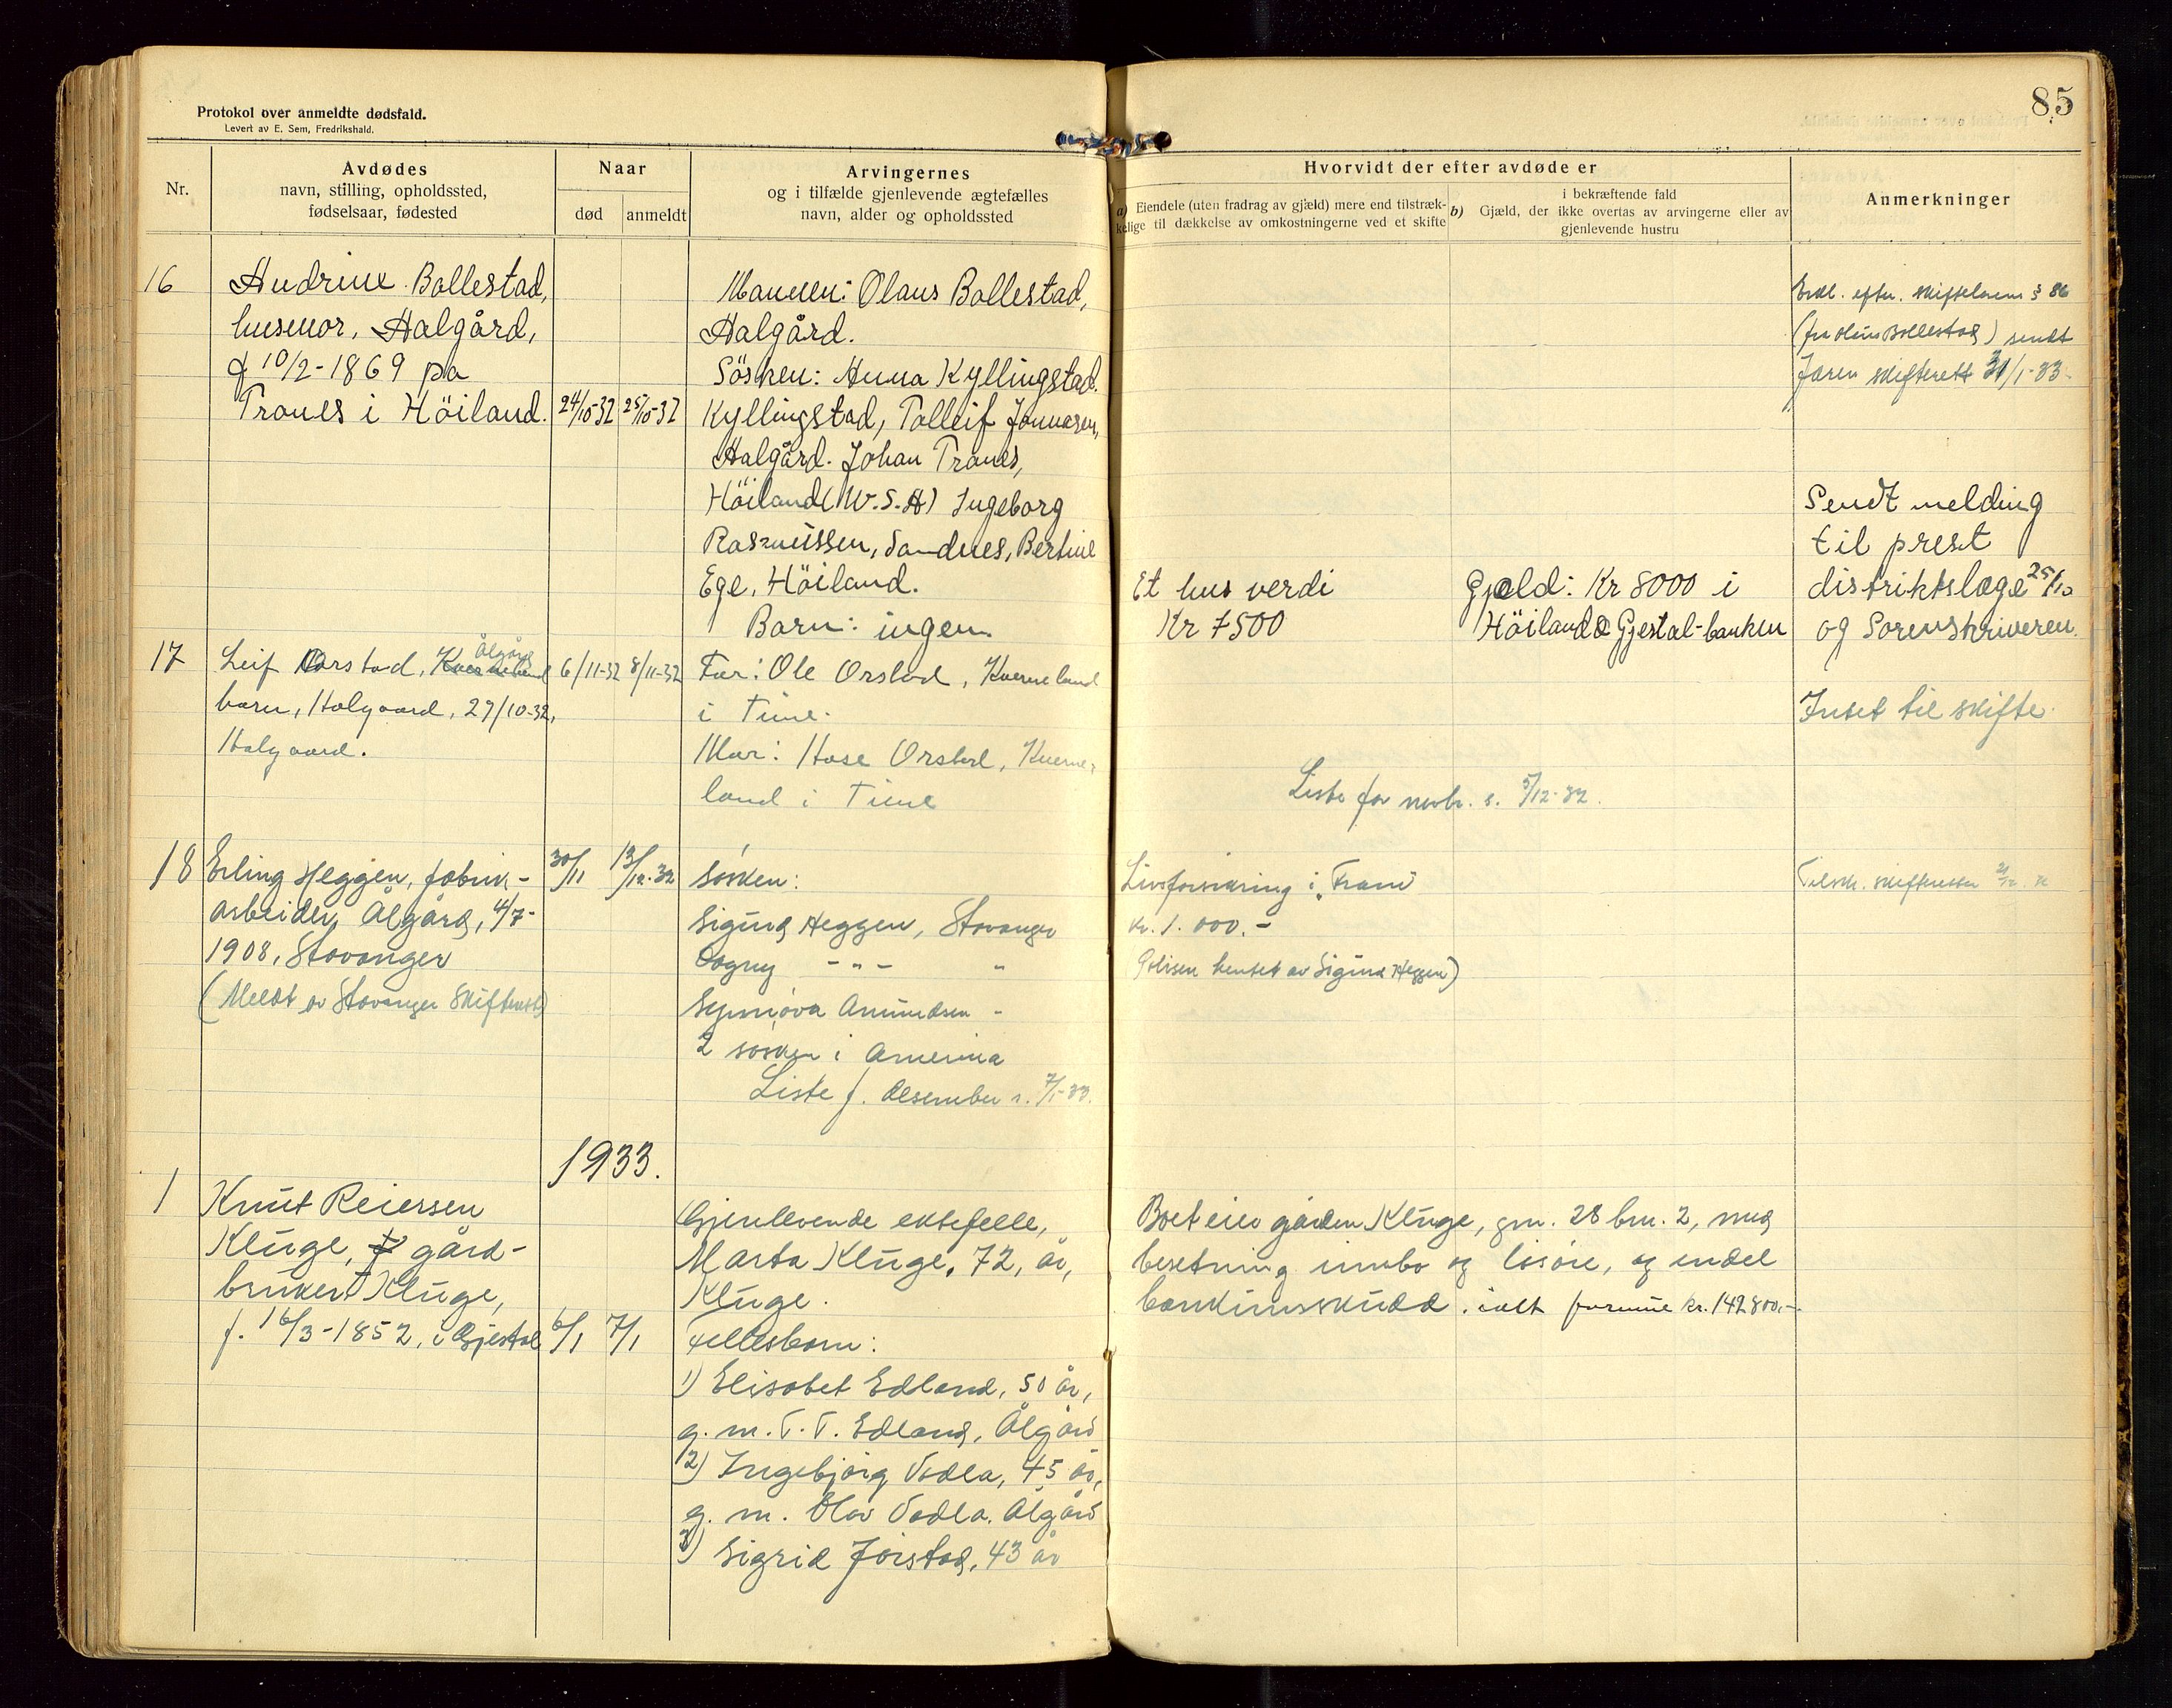 Protokol over anmeldte dødsfald.
Levert av E. Sem, Fredrikshald.
85
Nr.
Avdødes
navn, stilling, opholdssted,
fødselsaar, fødested
Naar
død
anmeldt
Arvingernes
og i tilfælde gjenlevende ægtefælles
navn, alder og opholdssted
Hvorvidt der efter avdøde er
a) Eiendele (uten fradrag av gjæld) mere end tilstræk-
kelige til dækkelse av omkostningerne ved et skifte
i bekræftende fald
b) Gjæld, der ikke overtas av arvingerne eller av
gjenlevende hustru
Anmerkninger
16
Andrine Bollestad,
husmor, Aalgård,
f 10/2-1869 på
Tranes i Höiland.
24/10-32
25/10-32
Mannen: Olaus Bollestad,
Aalgård.
Sösken: Anna Kyllingstad.
Kyllingstad, Tolleif Jonassen,
Aalgård. Johan Tranes,
Höiland (W.S.A) Ingeborg
Rasmussen, Sandnes, Bertine
Ege, Höiland.
Barn: ingen
Et hus verdi
Kr 7500
Gjæld: Kr 8000 i
Höiland & Gjestal-banken
Erkl. efter. skifteloven § 86
(fra Olaus Bollestad) sendt
Jæren skifterett 31/1-33-
Sendt melding
til prest
distriktslæge 25/10
og Sorenskriveren.
17
Ålgård
Leif Orstad, Kverneland
barn, Aalgaard, 29/10-32,
Aalgaard.
6/11-32
8/11-32
Far: Ole Orstad, Kverneland
i Time.
Mor: Aase Orstad, Kverne-
land i Time
Intet til skifte.
Liste for novbr. s. 5/12-32.
18
Erling Heggen, fabrik-
arbeider, Ålgård, 4/7-
1908, Stavanger
(Meldt av Stavanger Skifterett)
30/11
13/12-32
Søsken:
Sigurd Heggen, Stavanger
Dagny - " - "
Synnøva Amundsen -
2 søsken i Amerika
Liste f. desember s. 7/1-33.
Livsforsikring i "Fram"
kr. 1.000.-
Polisen hentet av Sigurd Heggen)
skifteretten
1933.
1
Knut Reiersen
Kluge, gård-
bruker, Kluge,
f. 16/3-1852, i Gjestal
6/1
7/1
Gjenlevende ektefelle,
Marta Kluge, 72, år,
Kluge.
Fellesbarn:
1) Elisabet Edland, 50 år,
g. m. T. T. Edland, Ålgård
2) Ingebjørg Vadla, 45 år,
g. m. Olav Vadla. Ålgård
3) Sigrid Jørstad, 43 år
Boet eier gården Kluge, gnr. 28 bnr. 2, med
besetning innbo og løsøre, og endel
bankinnskudd. ialt formue kr. 142800.-